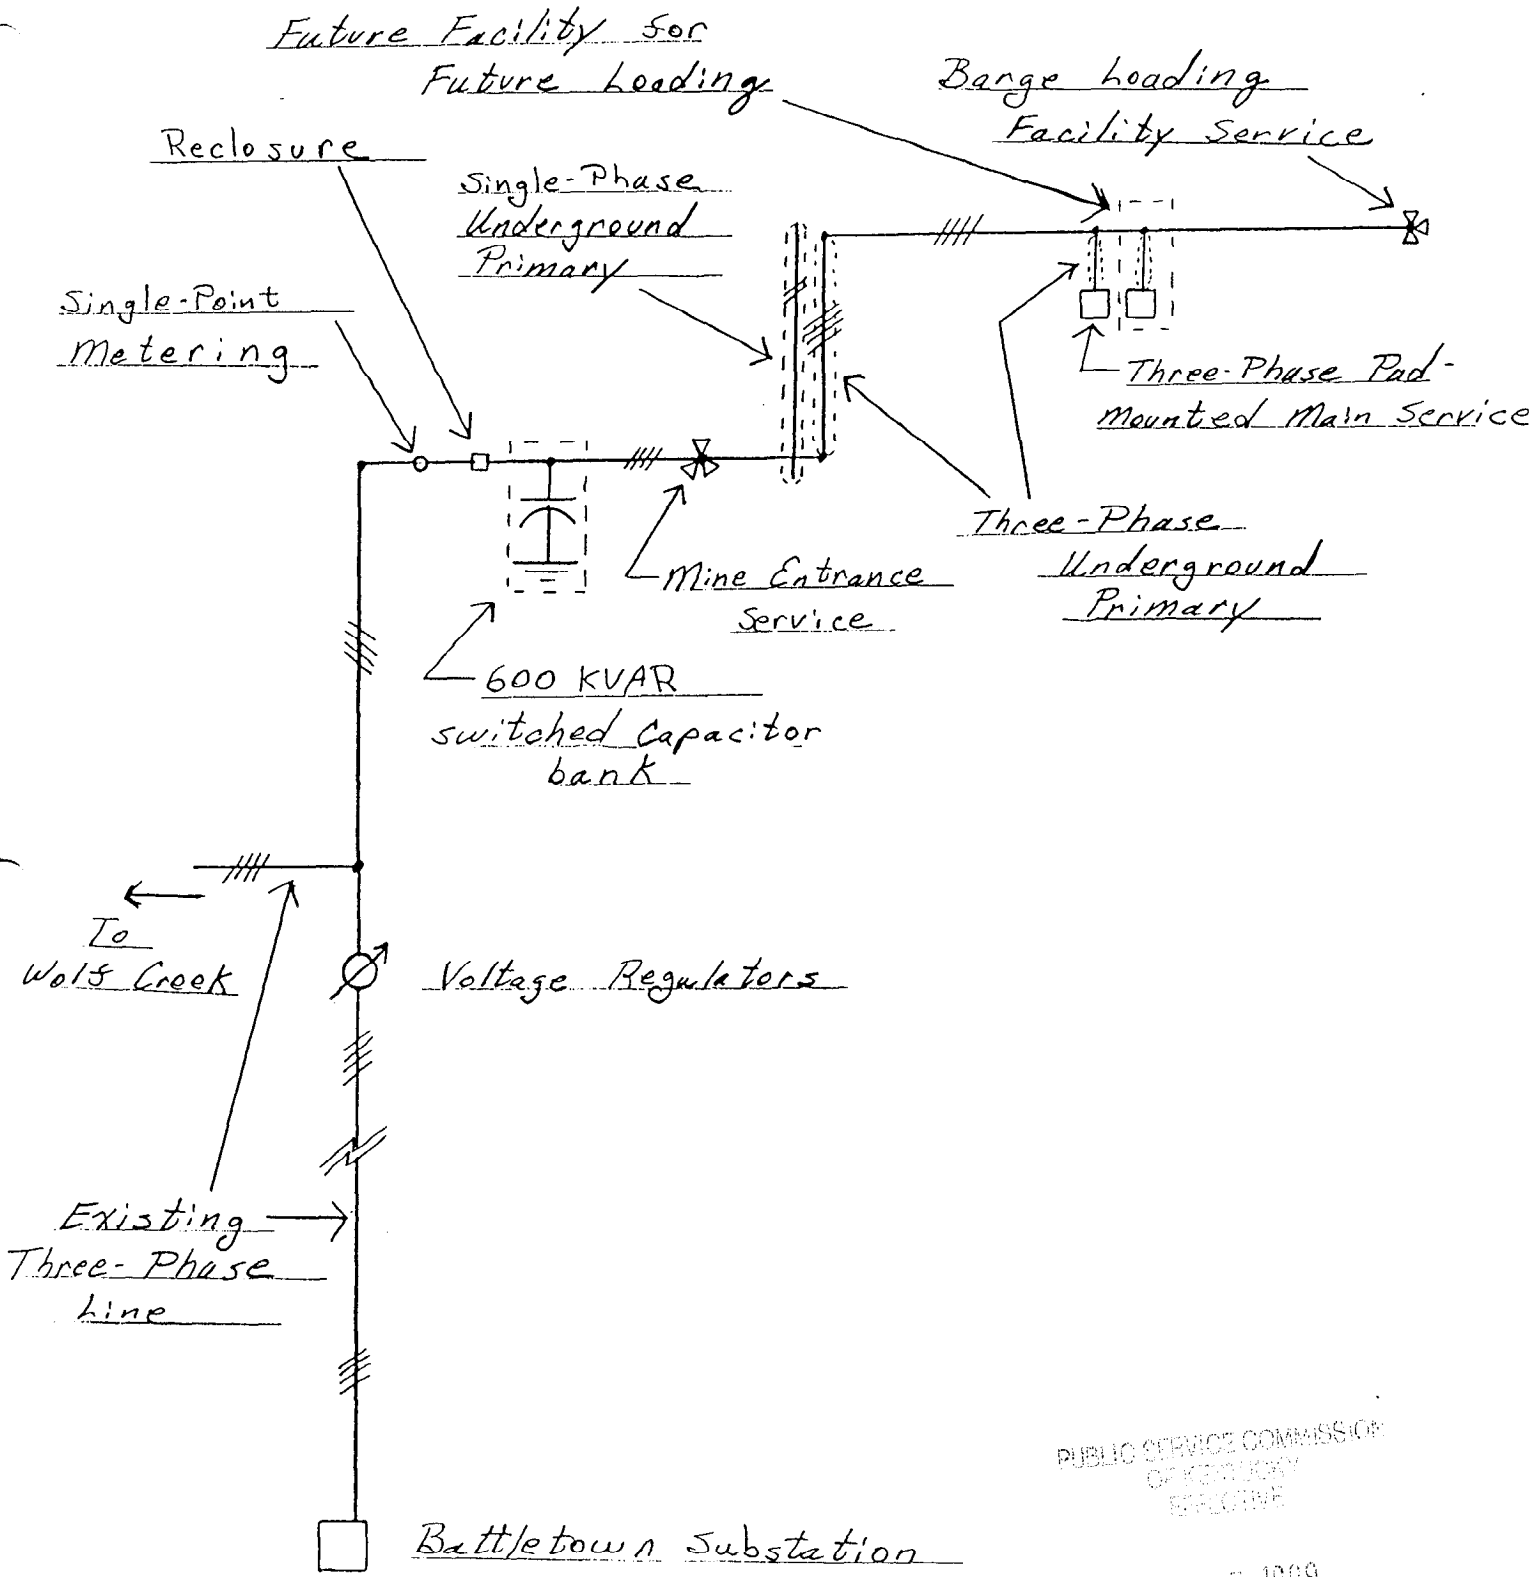 Future Facility for
Future Loading
Barge Loading
Facility Service
Reclosure
Single-Phase
Underground
Primary
Single-Point
Metering
Three-Phase Pad-
mounted Main Service
Three-Phase
Underground
Primary
Mine Entrance
Service
600 KVAR
switched Capacitor
bank
To
Wolf Creek
Voltage Regulators
Existing
Three-Phase
Line
Battletown Substation
PUBLIC SERVICE COMMISSION
OF KENTUCKY
EFFECTIVE